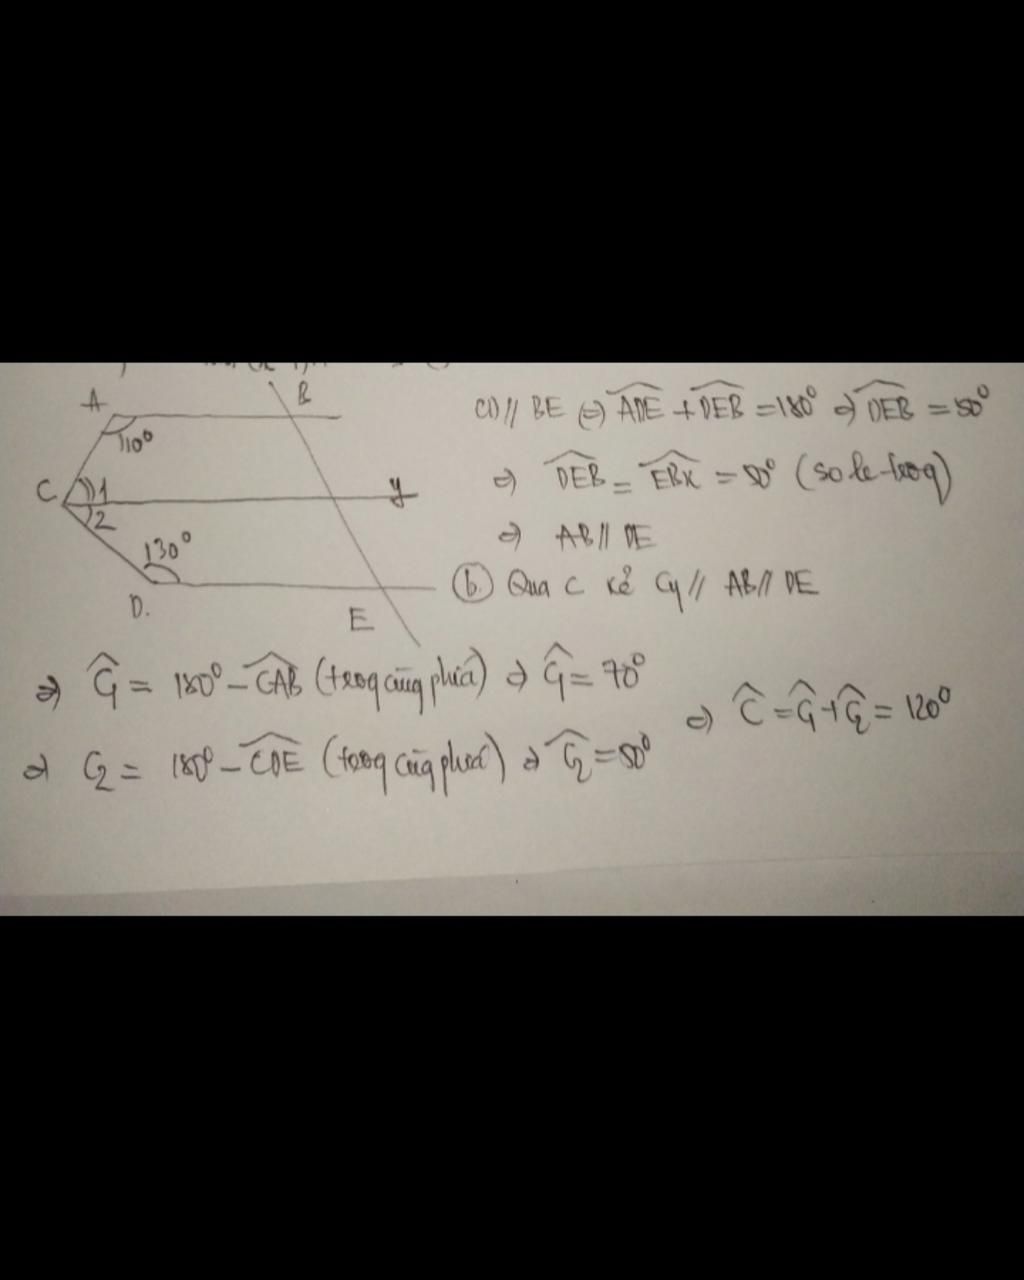 A
B
110°
C
1
y
2
130°
D.
E
CD // BE ⇔ ADE + DEB = 180° ⇒ DEB = 50°
⇒ DEB = EBx = 50° (so le trog)
⇒ AB // DE
b. Qua C kẻ Cy // AB // DE
⇒ C1 = 180° - CAB (trog cùng phía) ⇒ C1 = 70°
⇒ C2 = 180° - CDE (trog cùng phía) ⇒ C2 = 50°
⇒ C = C1 + C2 = 120°